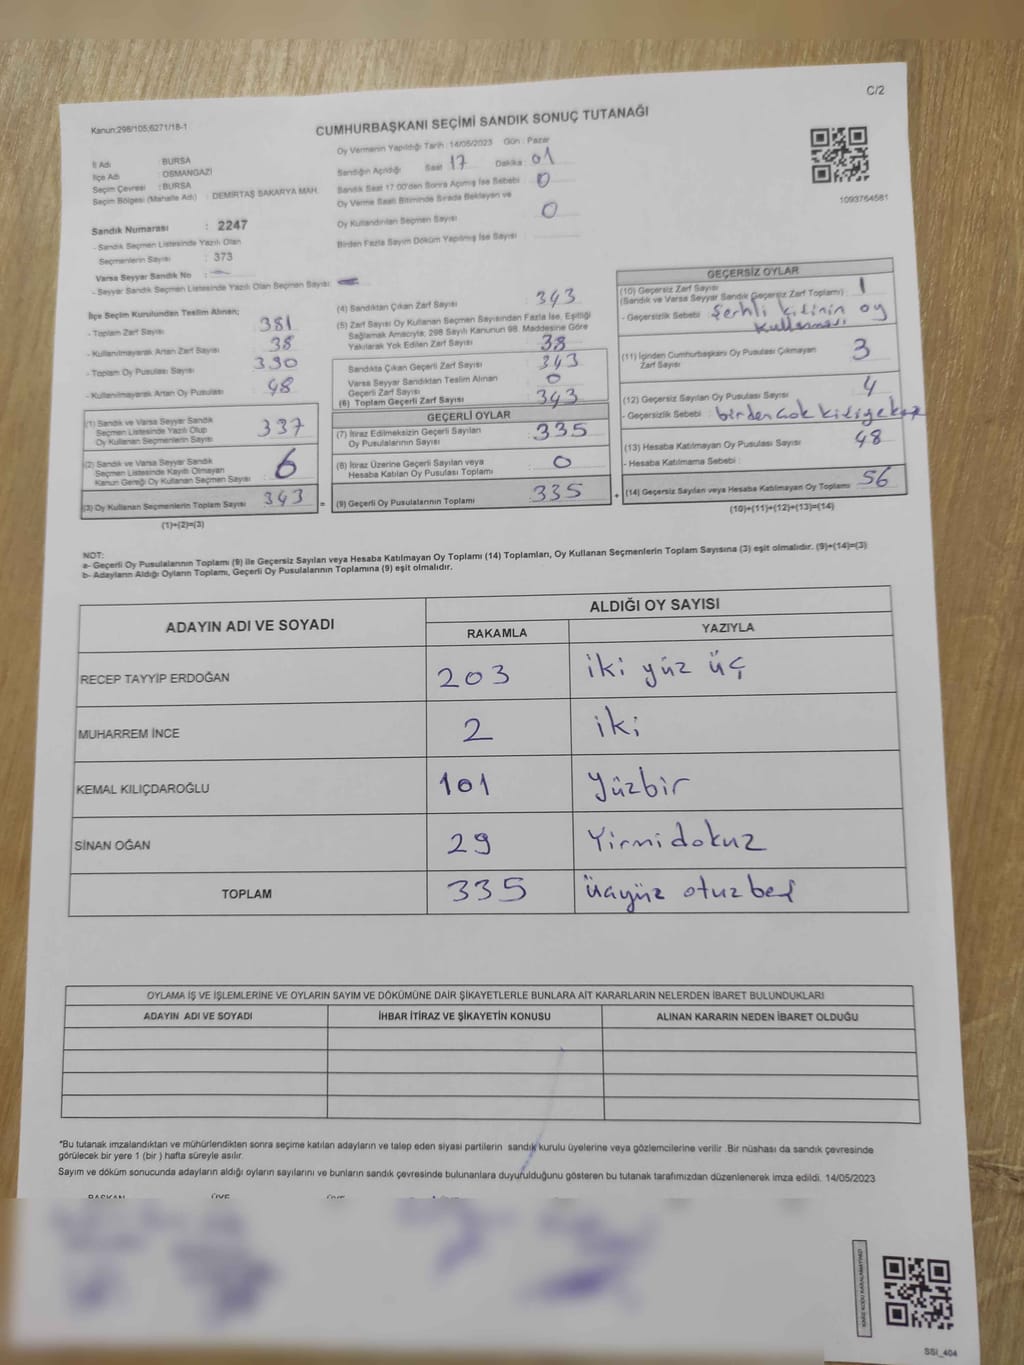 C/2
Kanun:298/105;6271/18-1
CUMHURBAŞKANI SEÇİMİ SANDIK SONUÇ TUTANAĞI
İl Adı : BURSA
İlçe Adı : OSMANGAZİ
Seçim Çevresi : BURSA
Seçim Bölgesi (Mahalle Adı) : DEMİRTAŞ SAKARYA MAH.
Sandık Numarası : 2247
- Sandık Seçmen Listesinde Yazılı Olan
Seçmenlerin Sayısı : 373
Varsa Seyyar Sandık No :
- Seyyar Sandık Seçmen Listesinde Yazılı Olan Seçmen Sayısı:
Oy Vermenin Yapıldığı Tarih : 14/05/2023 Gün : Pazar
Sandığın Açıldığı Saat 17 Dakika : 01
Sandık Saat 17.00'den Sonra Açılmış İse Sebebi : 0
Oy Verme Saati Bitiminde Sırada Bekleyen ve
Oy Kullandırılan Seçmen Sayısı 0
Birden Fazla Sayım Döküm Yapılmış İse Sayısı :
1093764581
İlçe Seçim Kurulundan Teslim Alınan;
- Toplam Zarf Sayısı 381
- Kullanılmayarak Artan Zarf Sayısı 38
- Toplam Oy Pusulası Sayısı 390
- Kullanılmayarak Artan Oy Pusulası 48
(1) Sandık ve Varsa Seyyar Sandık
Seçmen Listesinde Yazılı Olup
Oy Kullanan Seçmenlerin Sayısı 337
(2) Sandık ve Varsa Seyyar Sandık
Seçmen Listesinde Kayıtlı Olmayan
Kanun Gereği Oy Kullanan Seçmen Sayısı 6
(3) Oy Kullanan Seçmenlerin Toplam Sayısı 343
(1)+(2)=(3)
(4) Sandıktan Çıkan Zarf Sayısı 343
(5) Zarf Sayısı Oy Kullanan Seçmen Sayısından Fazla İse, Eşitliği
Sağlamak Amacıyla; 298 Sayılı Kanunun 98. Maddesine Göre
Yakılarak Yok Edilen Zarf Sayısı 38
Sandıkta Çıkan Geçerli Zarf Sayısı 343
Varsa Seyyar Sandıktan Teslim Alınan
Geçerli Zarf Sayısı 0
(6) Toplam Geçerli Zarf Sayısı 343
GEÇERLİ OYLAR
(7) İtiraz Edilmeksizin Geçerli Sayılan
Oy Pusulalarının Sayısı 335
(8) İtiraz Üzerine Geçerli Sayılan veya
Hesaba Katılan Oy Pusulası Toplamı 0
= (9) Geçerli Oy Pusulalarının Toplamı 335
GEÇERSİZ OYLAR
(10) Geçersiz Zarf Sayısı 1
(Sandık ve Varsa Seyyar Sandık Geçersiz Zarf Toplamı)
- Geçersizlik Sebebi : Şerhli kilinin oy
kullanması
(11) İçinden Cumhurbaşkanı Oy Pusulası Çıkmayan
Zarf Sayısı 3
(12) Geçersiz Sayılan Oy Pusulası Sayısı 4
- Geçersizlik Sebebi : birden çok kişiye
(13) Hesaba Katılmayan Oy Pusulası Sayısı 48
- Hesaba Katılmama Sebebi :
+ (14) Geçersiz Sayılan veya Hesaba Katılmayan Oy Toplamı 56
(10)+(11)+(12)+(13)=(14)
NOT:
a- Geçerli Oy Pusulalarının Toplamı (9) ile Geçersiz Sayılan veya Hesaba Katılmayan Oy Toplamı (14) Toplamları, Oy Kullanan Seçmenlerin Toplam Sayısına (3) eşit olmalıdır. (9)+(14)=(3)
b- Adayların Aldığı Oyların Toplamı, Geçerli Oy Pusulalarının Toplamına (9) eşit olmalıdır.
ADAYIN ADI VE SOYADI ALDIĞI OY SAYISI
RAKAMLA YAZIYLA
RECEP TAYYİP ERDOĞAN 203 iki yüz üç
MUHARREM İNCE 2 iki
KEMAL KILIÇDAROĞLU 101 Yüzbir
SİNAN OĞAN 29 Yirmidokuz
TOPLAM 335 üçyüz otuzbeş
OYLAMA İŞ VE İŞLEMLERİNE VE OYLARIN SAYIM VE DÖKÜMÜNE DAİR ŞİKAYETLERLE BUNLARA AİT KARARLARIN NELERDEN İBARET BULUNDUKLARI
ADAYIN ADI VE SOYADI İHBAR İTİRAZ VE ŞİKAYETİN KONUSU ALINAN KARARIN NEDEN İBARET OLDUĞU
*Bu tutanak imzalandıktan ve mühürlendikten sonra seçime katılan adayların ve talep eden siyasi partilerin sandık kurulu üyelerine veya gözlemcilerine verilir .Bir nüshası da sandık çevresinde
görülecek bir yere 1 (bir ) hafta süreyle asılır.
Sayım ve döküm sonucunda adayların aldığı oyların sayılarını ve bunların sandık çevresinde bulunanlara duyurulduğunu gösteren bu tutanak tarafımızdan düzenlenerek imza edildi. 14/05/2023
BAŞKAN ÜYE ÜYE
KARE KODU KARALAMAYINIZ!
SSI_404